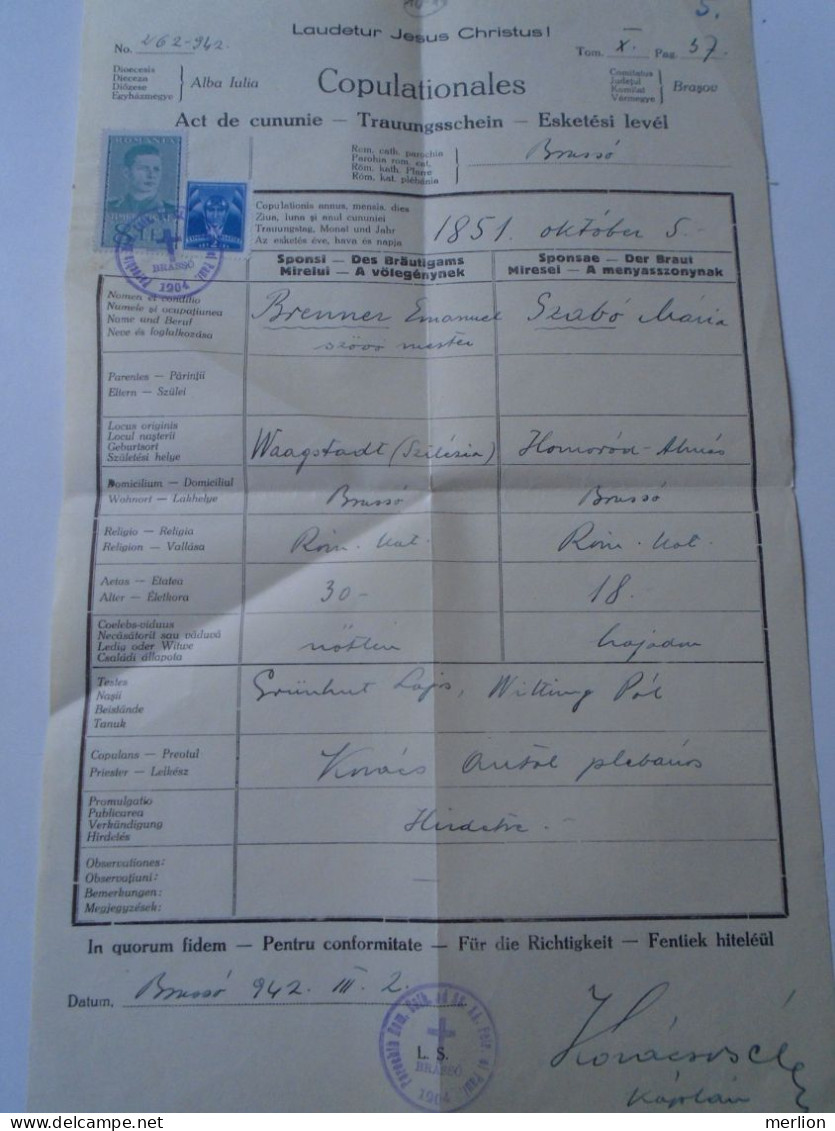 5.
Laudetur Jesus Christus!
No. 462-942.
Tom. X. Pag. 37
Dioecesis
Dieceza
Diözese
Egyházmegye
Alba Iulia
Copulationales
Comitatus
Județul
Komitat
Vármegye
Brașov
Act de cununie — Trauungsschein — Esketési levél
Rom. cath. parochia
Parohia rom. cat.
Röm. kath. Pfarre
Róm. kat. plébánia
Brassó
ROMANIA
Copulationis annus, mensis, dies
Ziua, luna și anul cununiei
Trauungstag, Monat und Jahr
Az esketés éve, hava és napja
1851. október 5.-
BRASSÓ
1904
Sponsi — Des Bräutigams
Mirelui — A völegénynek
Sponsae — Der Braut
Miresei — A menyasszonynak
Nomen et conditio
Numele și ocupațiunea
Name und Beruf
Neve és foglalkozása
Brenner Emanuel
szövő mester
Szabó Mária
Parentes — Părinții
Eltern — Szülei
Locus originis
Locul nașterii
Geburtsort
Születési helye
Waagstadt (Szilézia)
Homoród-Almás
Domicilium — Domiciliul
Wohnort — Lakhelye
Brassó
Brassó
Religio — Religia
Religion — Vallása
Róm. kat.
Róm. kat.
Aetas — Etatea
Alter — Életkora
30-
18.-
Coelebs-viduus
Necăsătorit sau văduvă
Ledig oder Witwe
Családi állapota
nőtlen
hajadon
Testes
Nașii
Beistände
Tanuk
Grünhut Lajos, Witting Pál
Copulans — Preotul
Priester — Lelkész
Kovács Antal plebános
Promulgatio
Publicarea
Verkündigung
Hirdetés
Hirdetve.-
Observationes:
Observațiuni:
Bemerkungen:
Megjegyzések:
—
In quorum fidem — Pentru conformitate — Für die Richtigkeit — Fentiek hiteléül
Datum, Brassó 942. III. 2.
L. S.
BRASSÓ
1904
Káplán
merlion
delcampe.net